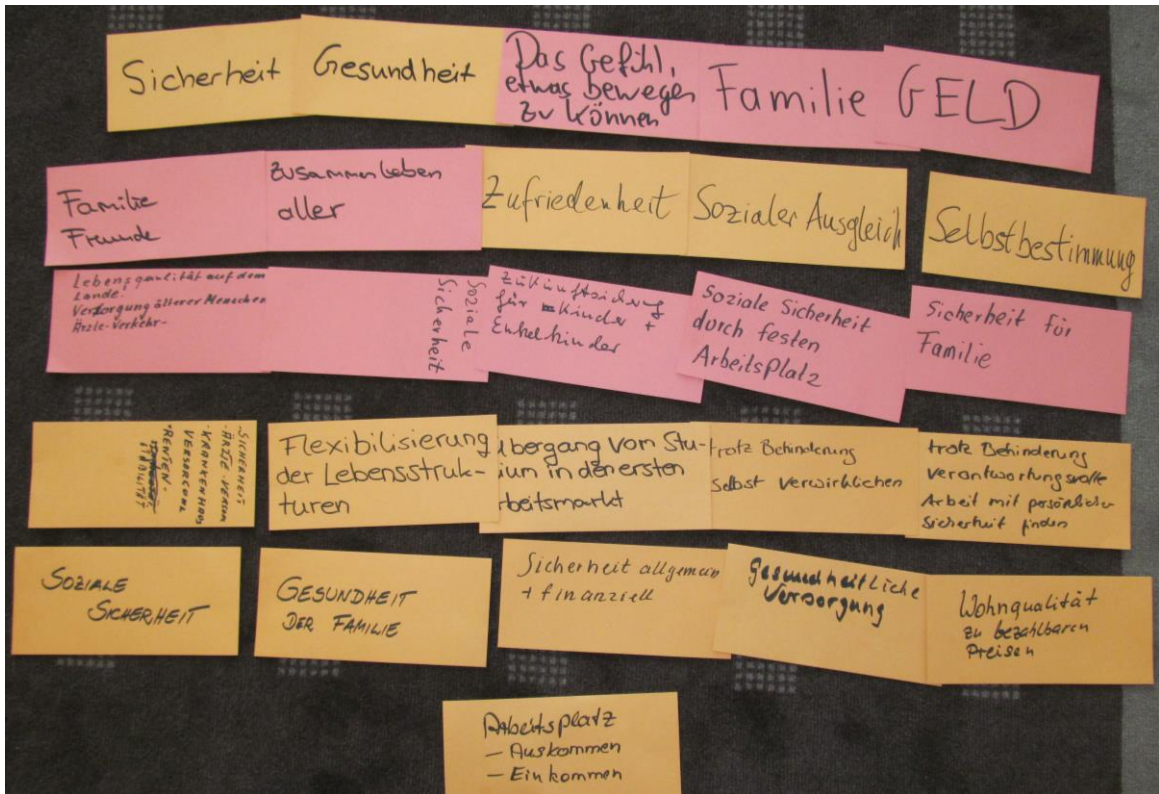 Sicherheit
Gesundheit
Das Gefühl,
etwas bewegen
zu können
Familie
GELD
Familie
Freunde
Zusammenleben
aller
Zufriedenheit
Sozialer Ausgleich
Selbstbestimmung
Lebensqualität auf dem
Lande.
Versorgung älterer Menschen
Ärzte-Verkehr-
Soziale
Sicherheit
Zukunftsicherung
für Kinder +
Enkelkinder
Soziale Sicherheit
durch festen
Arbeitsplatz
Sicherheit für
Familie
-SICHERHEIT
-ÄRZTE-VERSORG
-KRANKENHAUS
VERSORGUNG
•RENTEN-
STABILITÄT
Flexibilisierung
der Lebensstruk-
turen
Übergang vom Stu-
ium in den ersten
rbeitsmarkt
trotz Behinderung
selbst verwirklichen
trotz Behinderung
verantwortungsvolle
Arbeit mit persönlicher
Sicherheit finden
SOZIALE
SICHERHEIT
GESUNDHEIT
DER FAMILIE
Sicherheit allgemein
+ finanziell
Gesundheitliche
Versorgung
Wohnqualität
zu bezahlbaren
Preisen
Arbeitsplatz
– Auskommen
– Einkommen